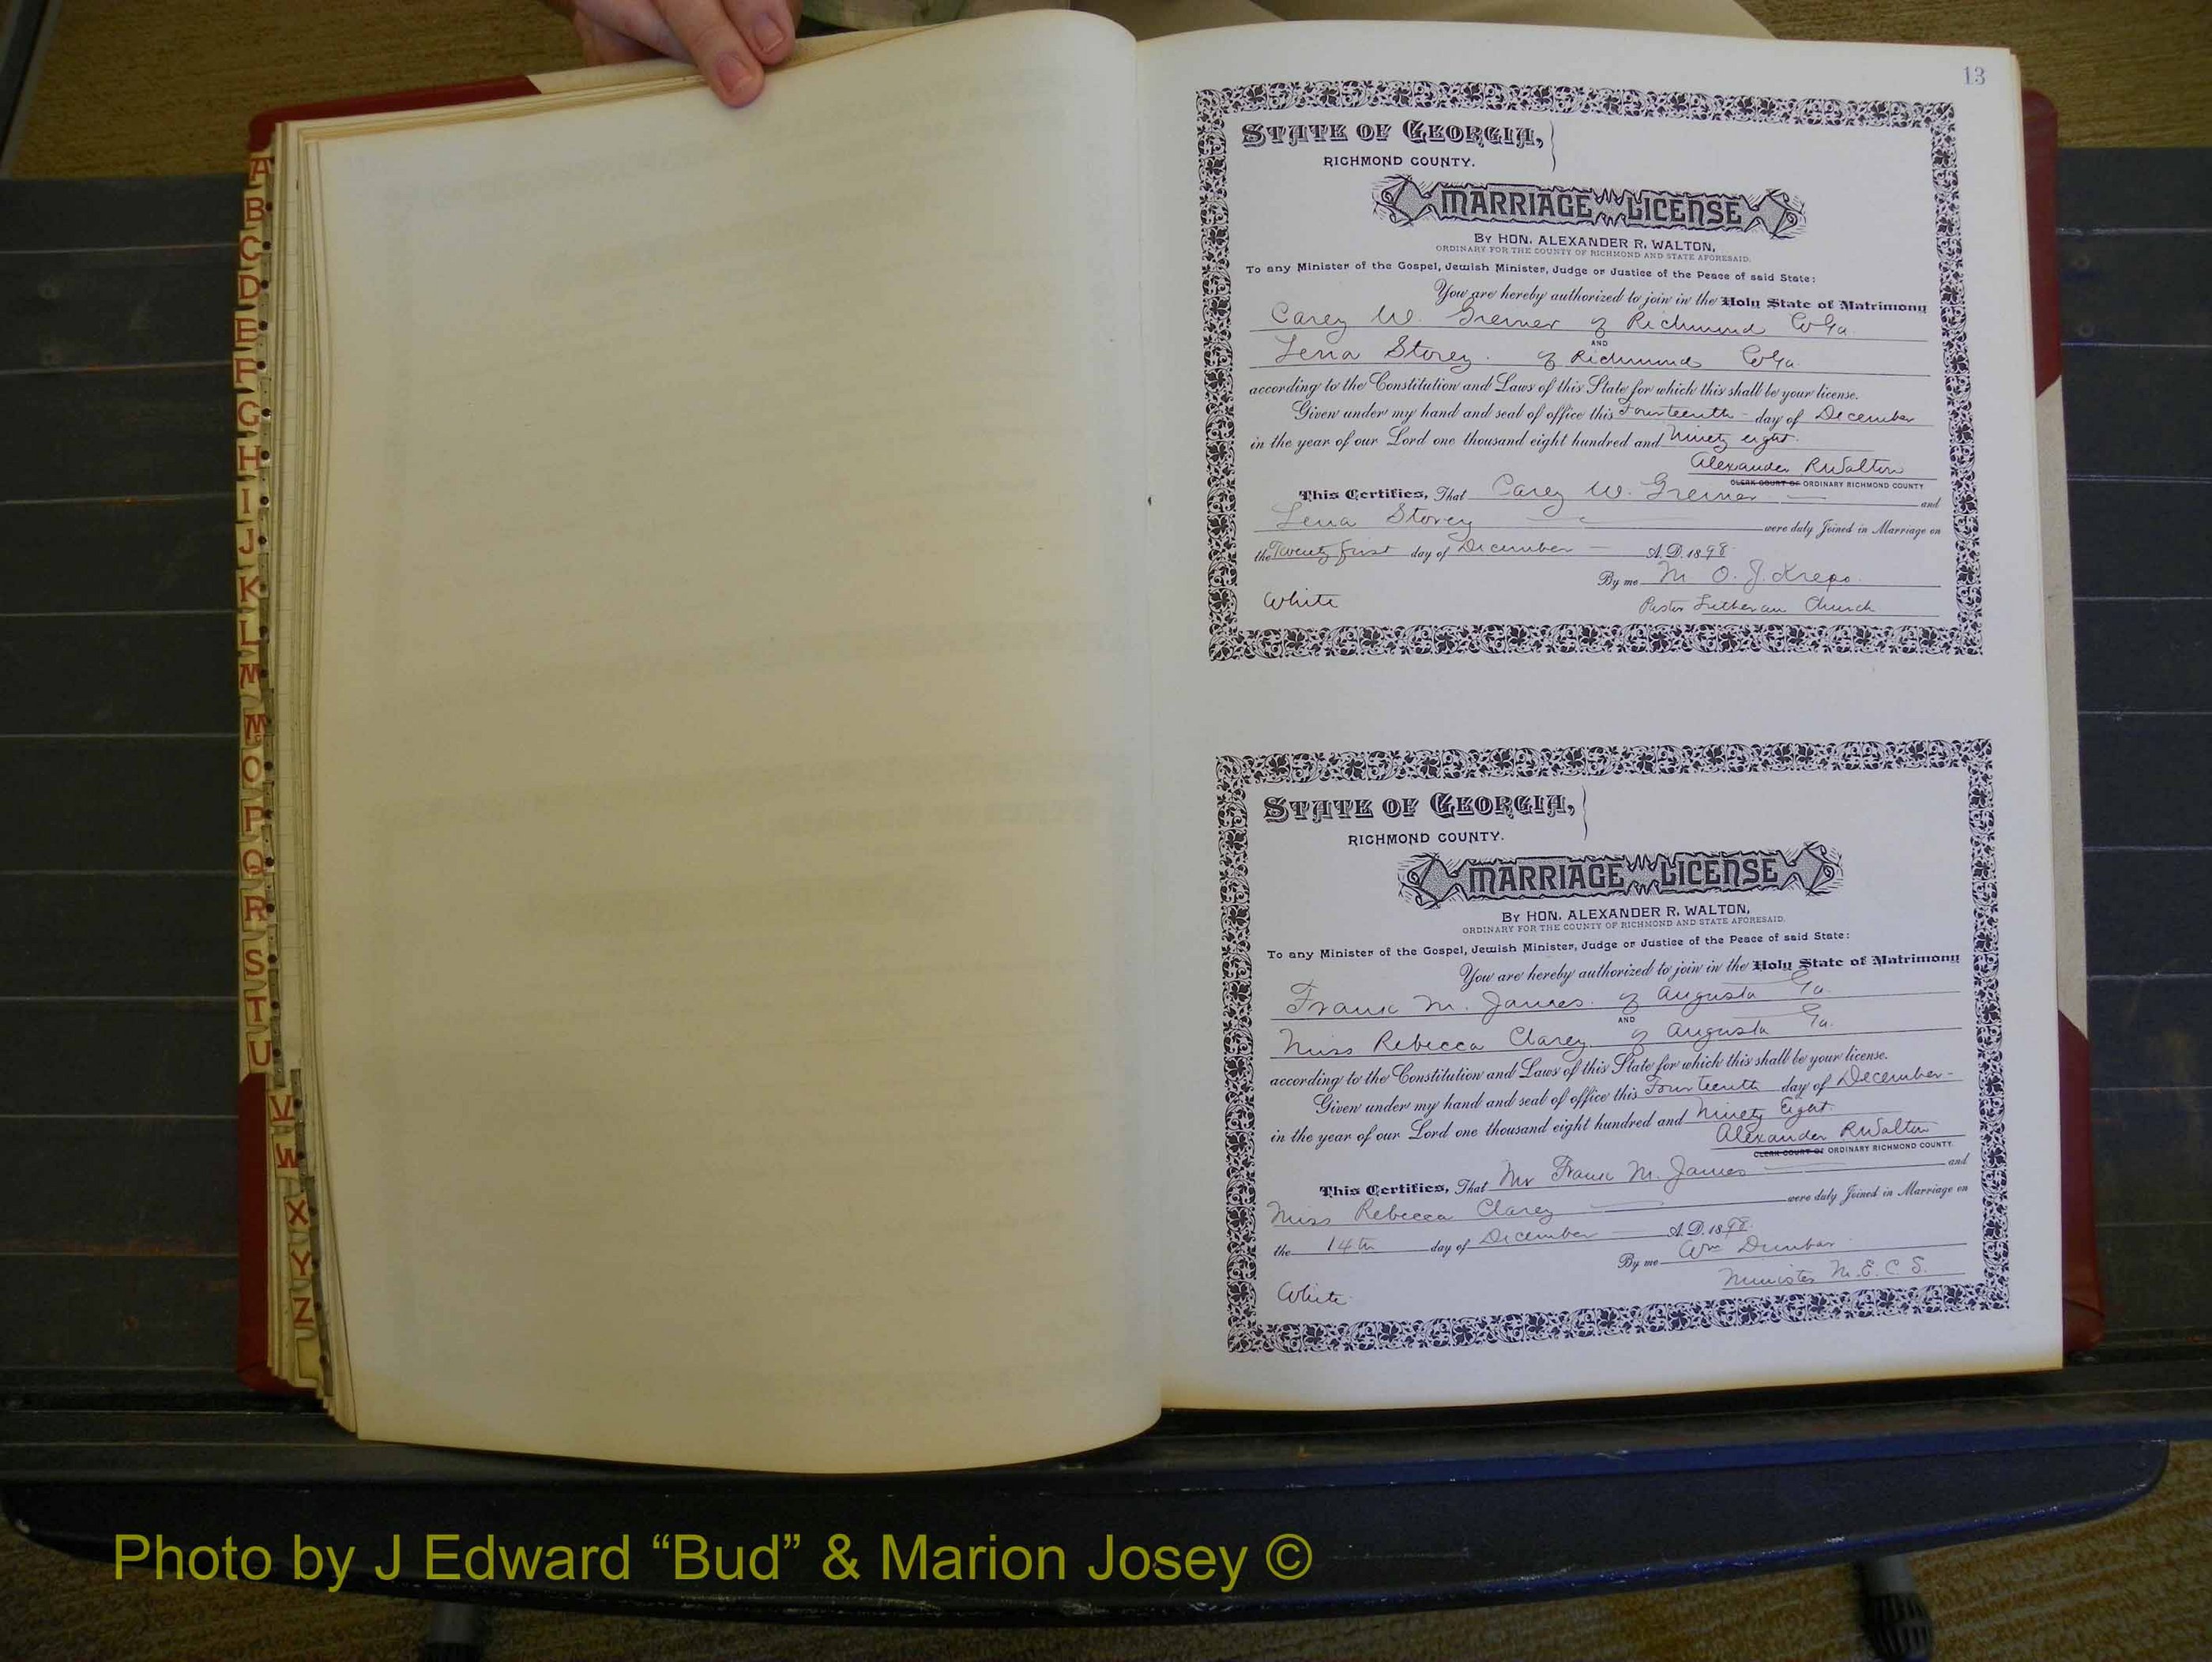 A
B
C
D
E
F
G
H
I
J
K
L
M
Mc
O
P
Q
R
S
T
U
V
W
X
Y
Z
13
STATE OF GEORGIA,
RICHMOND COUNTY.
MARRIAGE LICENSE
By HON. ALEXANDER R. WALTON,
ORDINARY FOR THE COUNTY OF RICHMOND AND STATE AFORESAID.
To any Minister of the Gospel, Jewish Minister, Judge or Justice of the Peace of said State:
You are hereby authorized to join in the Holy State of Matrimony
Carey W. Greiner of Richmond Co Ga.
AND
Lena Storey. of Richmond Co Ga.
according to the Constitution and Laws of this State for which this shall be your license.
Given under my hand and seal of office this Fourteenth - day of December
in the year of our Lord one thousand eight hundred and Ninety eight.
Alexander R Walton
CLERK COURT OF ORDINARY RICHMOND COUNTY
This Certifies, That Carey W. Greiner and
Lena Storey were duly Joined in Marriage on
the Twenty first day of December A. D. 1898.
By me M. O. J. Kreps.
White Pastor Lutheran Church
STATE OF GEORGIA,
RICHMOND COUNTY.
MARRIAGE LICENSE
By HON. ALEXANDER R. WALTON,
ORDINARY FOR THE COUNTY OF RICHMOND AND STATE AFORESAID.
To any Minister of the Gospel, Jewish Minister, Judge or Justice of the Peace of said State:
You are hereby authorized to join in the Holy State of Matrimony
Frank M. James. of Augusta Ga.
AND
Miss Rebecca Clarey of Augusta Ga.
according to the Constitution and Laws of this State for which this shall be your license.
Given under my hand and seal of office this Fourteenth day of December -
in the year of our Lord one thousand eight hundred and Ninety Eight.
Alexander R Walton
CLERK COURT OF ORDINARY RICHMOND COUNTY.
This Certifies, That Mr Frank M. James and
Miss Rebecca Clarey were duly Joined in Marriage on
the 14th day of December A. D. 1898.
By me Wm Dunbar
Minister M. E. C. S.
White.
Photo by J Edward “Bud” & Marion Josey ©